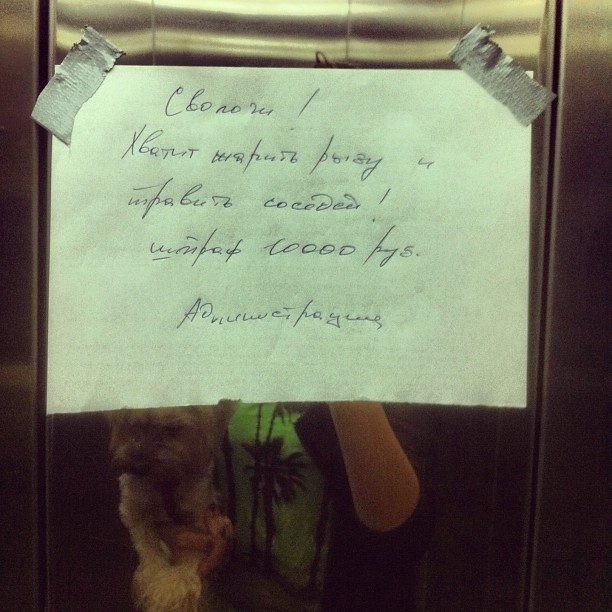 Сволочи!
Хватит жарить рыбу и
травить соседей!
штраф 10000 руб.
Администрация